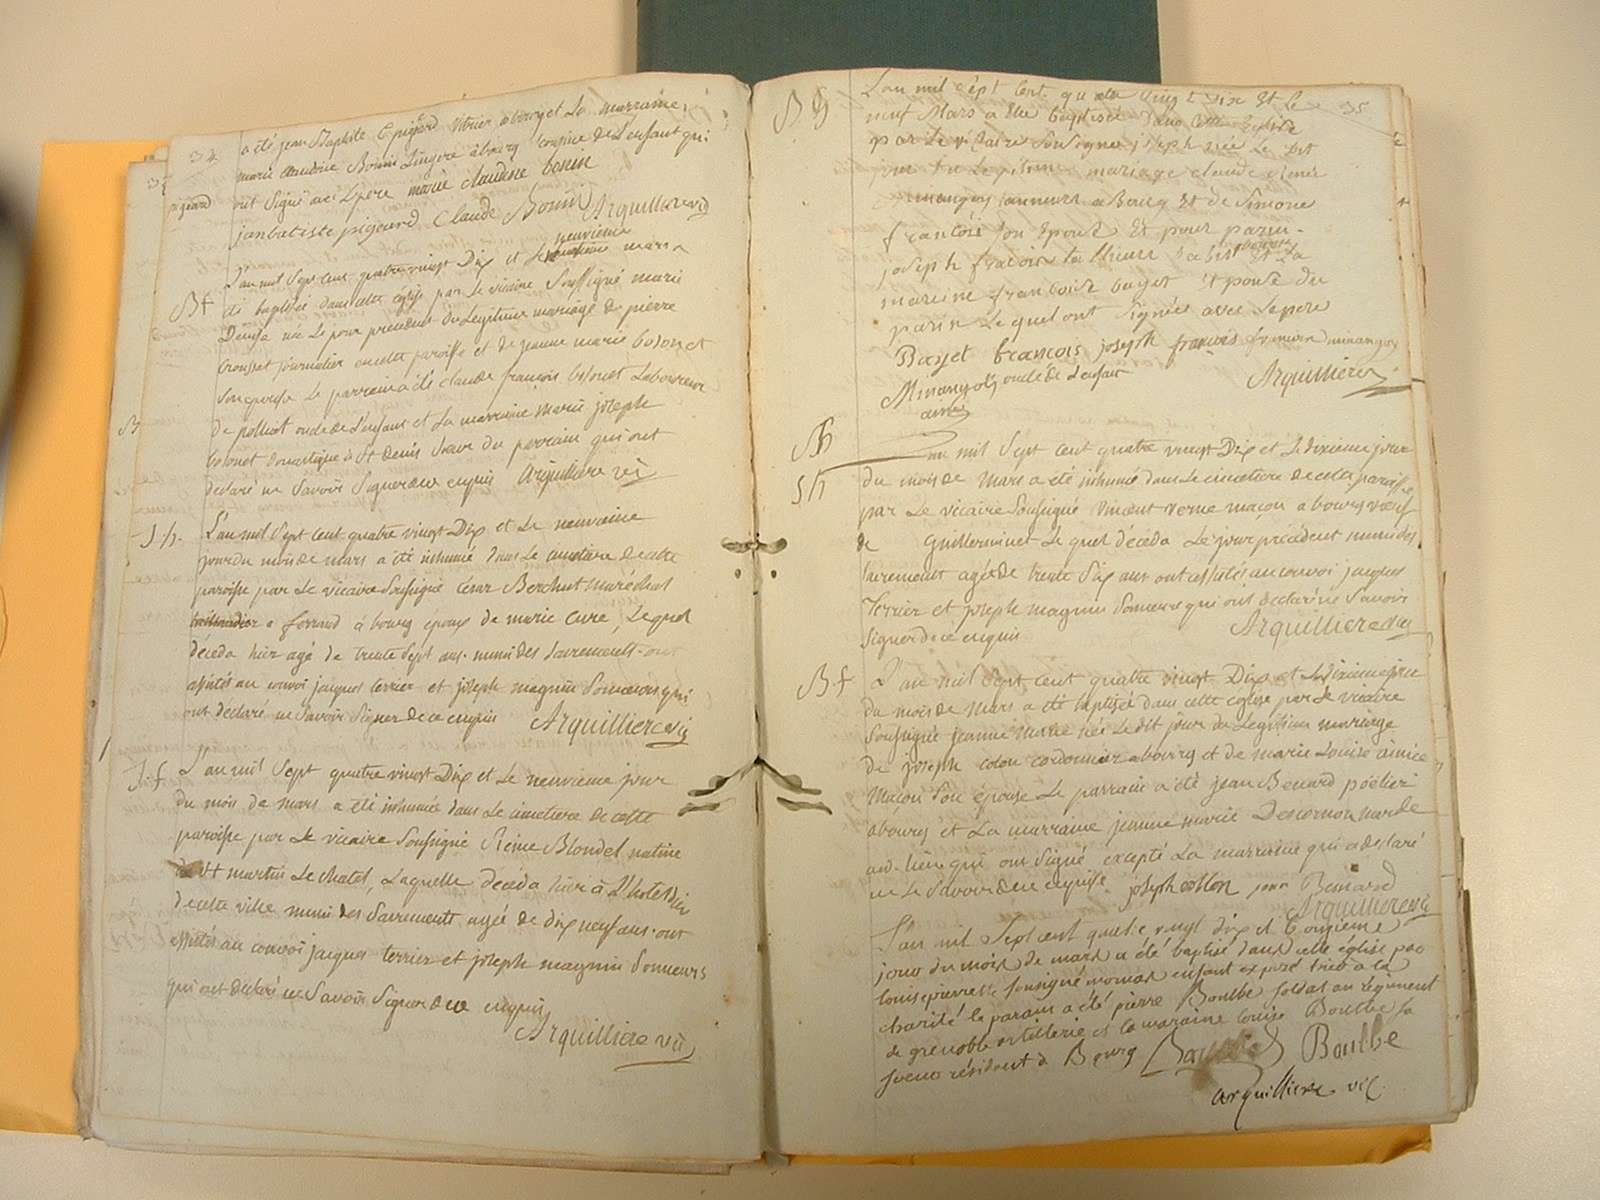 34
a été jean Baptiste Cpijard vitrier a bourg et La marraine
marie claudine Bonin Lingere a bourg cousine de L'enfant qui
pijeard
ont Signé avec Lpere marie claudine bonin
janbatiste pigeard Claude Bonin Arquilliere vic
neuvieme
L'an mil Sept cent quatre vingt Dix et Le mars a
Bf
été baptisée dans cette église par Le vicaire Soussigné marie
Denise née Le jour precedent du Legitime mariage de pierre
trousset journalier en cette paroisse et de jeanne marie bosonet
Son epouse Le parrain a été claude françois bosonet Laboureur
B
de polliat oncle de L'enfant et La marraine marie joseph
bosonet domestique à St denis Soeur du parrain qui ont
declaré ne Savoir Signer de ce enquis Arquilliere vic
S h.
L'an mil Sept cent quatre vingt Dix et Le neuvieme
jour du mois de mars a été inhumé dans Le cimetiere de cette
paroisse par Le vicaire Soussigné Cesar Berchut maréchal
a ferrand à bourg époux de marie cure, Lequel
déceda hier agé de trente Sept ans. muni des Sacrements. ont
assistés au convoi jacques terrier et joseph magnin Sonneurs qui
ont declaré ne Savoir Signer de ce enquis Arquilliere vic
S. f.
L'an mil Sept quatre vingt Dix et Le neuvieme jour
du mois de mars a été inhumée dans Le cimetiere de cette
paroisse par Le vicaire Soussigné Reine Blondel native
de St martin Le chatel, Laquelle déceda hier à L'hotel Dieu
de cette ville munie des Sacrements agée de dix neuf ans. ont
assistés au convoi jacques terrier et joseph magnin Sonneurs
qui ont declaré ne Savoir Signer de ce enquis
Arquilliere vic
35
B h
L'an mil cept Cent quatre vingt dix Et Le
neuf Mars a Ete baptisé dans cette Eglise
par Le vicaire Sousigné joseph née Le dit
jour du Legitime mariage claude René
minangoy a Bourg Et de Simone
françoise Son Epouse Et pour parin
joseph françois Et La
mareine francoise baget Epouse du
parin Lequel ont Signés avec Lepere
Bayet francois joseph françois minangoy
Minangoy oncle de L'enfant Arquilliere vic
Sh
L'an mil Sept cent quatre vingt Dix et Le dixieme jour
5/7
du mois de mars a été inhumé dans Le cimetiere de cette paroisse
par Le vicaire Soussigné vincent verne maçon a bourg veuf
de Guillerminet Lequel déceda Le jour précédent muni des
Sacrements agé de trente Six ans ont assistés au convoi jacques
Terrier et joseph magnin Sonneurs qui ont declaré ne Savoir
Signer de ce enquis Arquilliere vic
B. f
L'an mil Sept cent quatre vingt Dix et Le dixieme jour
du mois de mars a été baptisée dans cette eglise par Le vicaire
Soussigné jeanne marie née Le dit jour du Legitime mariage
de joseph colon cordonnier a bourg et de marie Louise aimée
maçon Son épouse Le parrain a été jean Benard poëlier
a bourg et La marraine jeanne marie Descornou
qui ont Signé excepté La marraine qui a declaré
ne Le Savoir de ce enquise. joseph collon jean Benard
Arquilliere vic
L'an mil Sept cent quatre vingt dix et L'onzieme
jour du mois de mars a été baptisé dans cette église par
le Soussigné enfant exposé hier a la
charité le parain a été pierre Boulbe Soldat au régiment
de grenoble artillerie et la maraine louise Boulbe Sa
Soeur résident a Bourg Boulbe
arquilliere vic